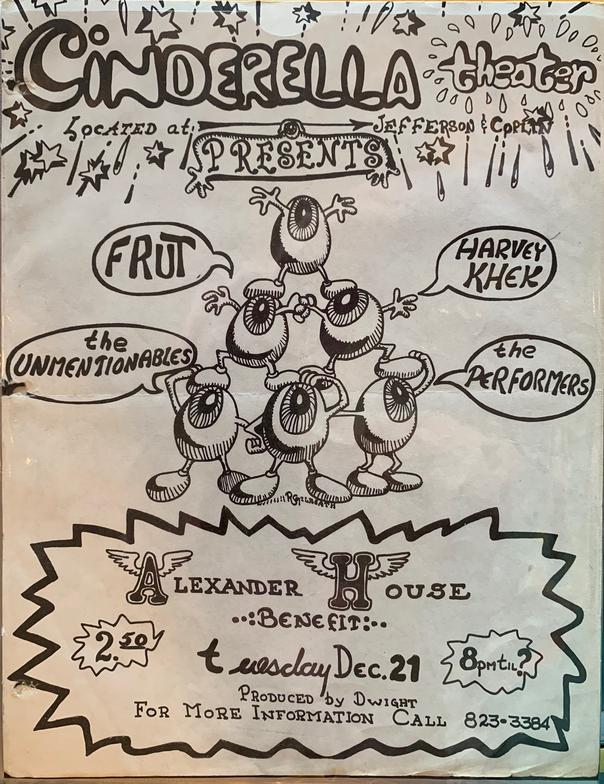 CiNDERELLA theater
LOCATED at: JEFFERSON & COPLIN
PRESENTS
FRUT
HARVEY KHEK
the UNMENTIONABLES
the PERFORMERS
ALEXANDER HOUSE
BENEFIT:
2.50
tuesday Dec. 21
8pm til?
PRODUCED by DWIGHT
FOR MORE INFORMATION CALL 823-3384